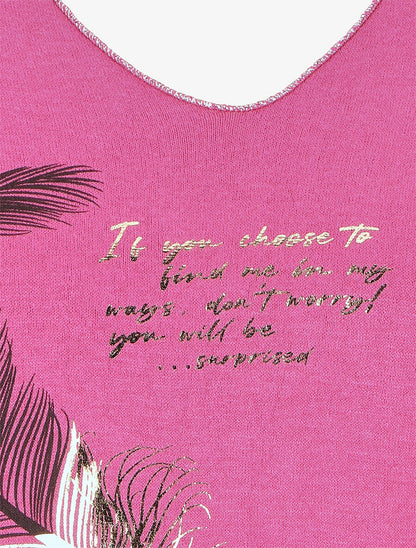 If you choose to
find me for my
ways, don't worry!
you will be
...surprised